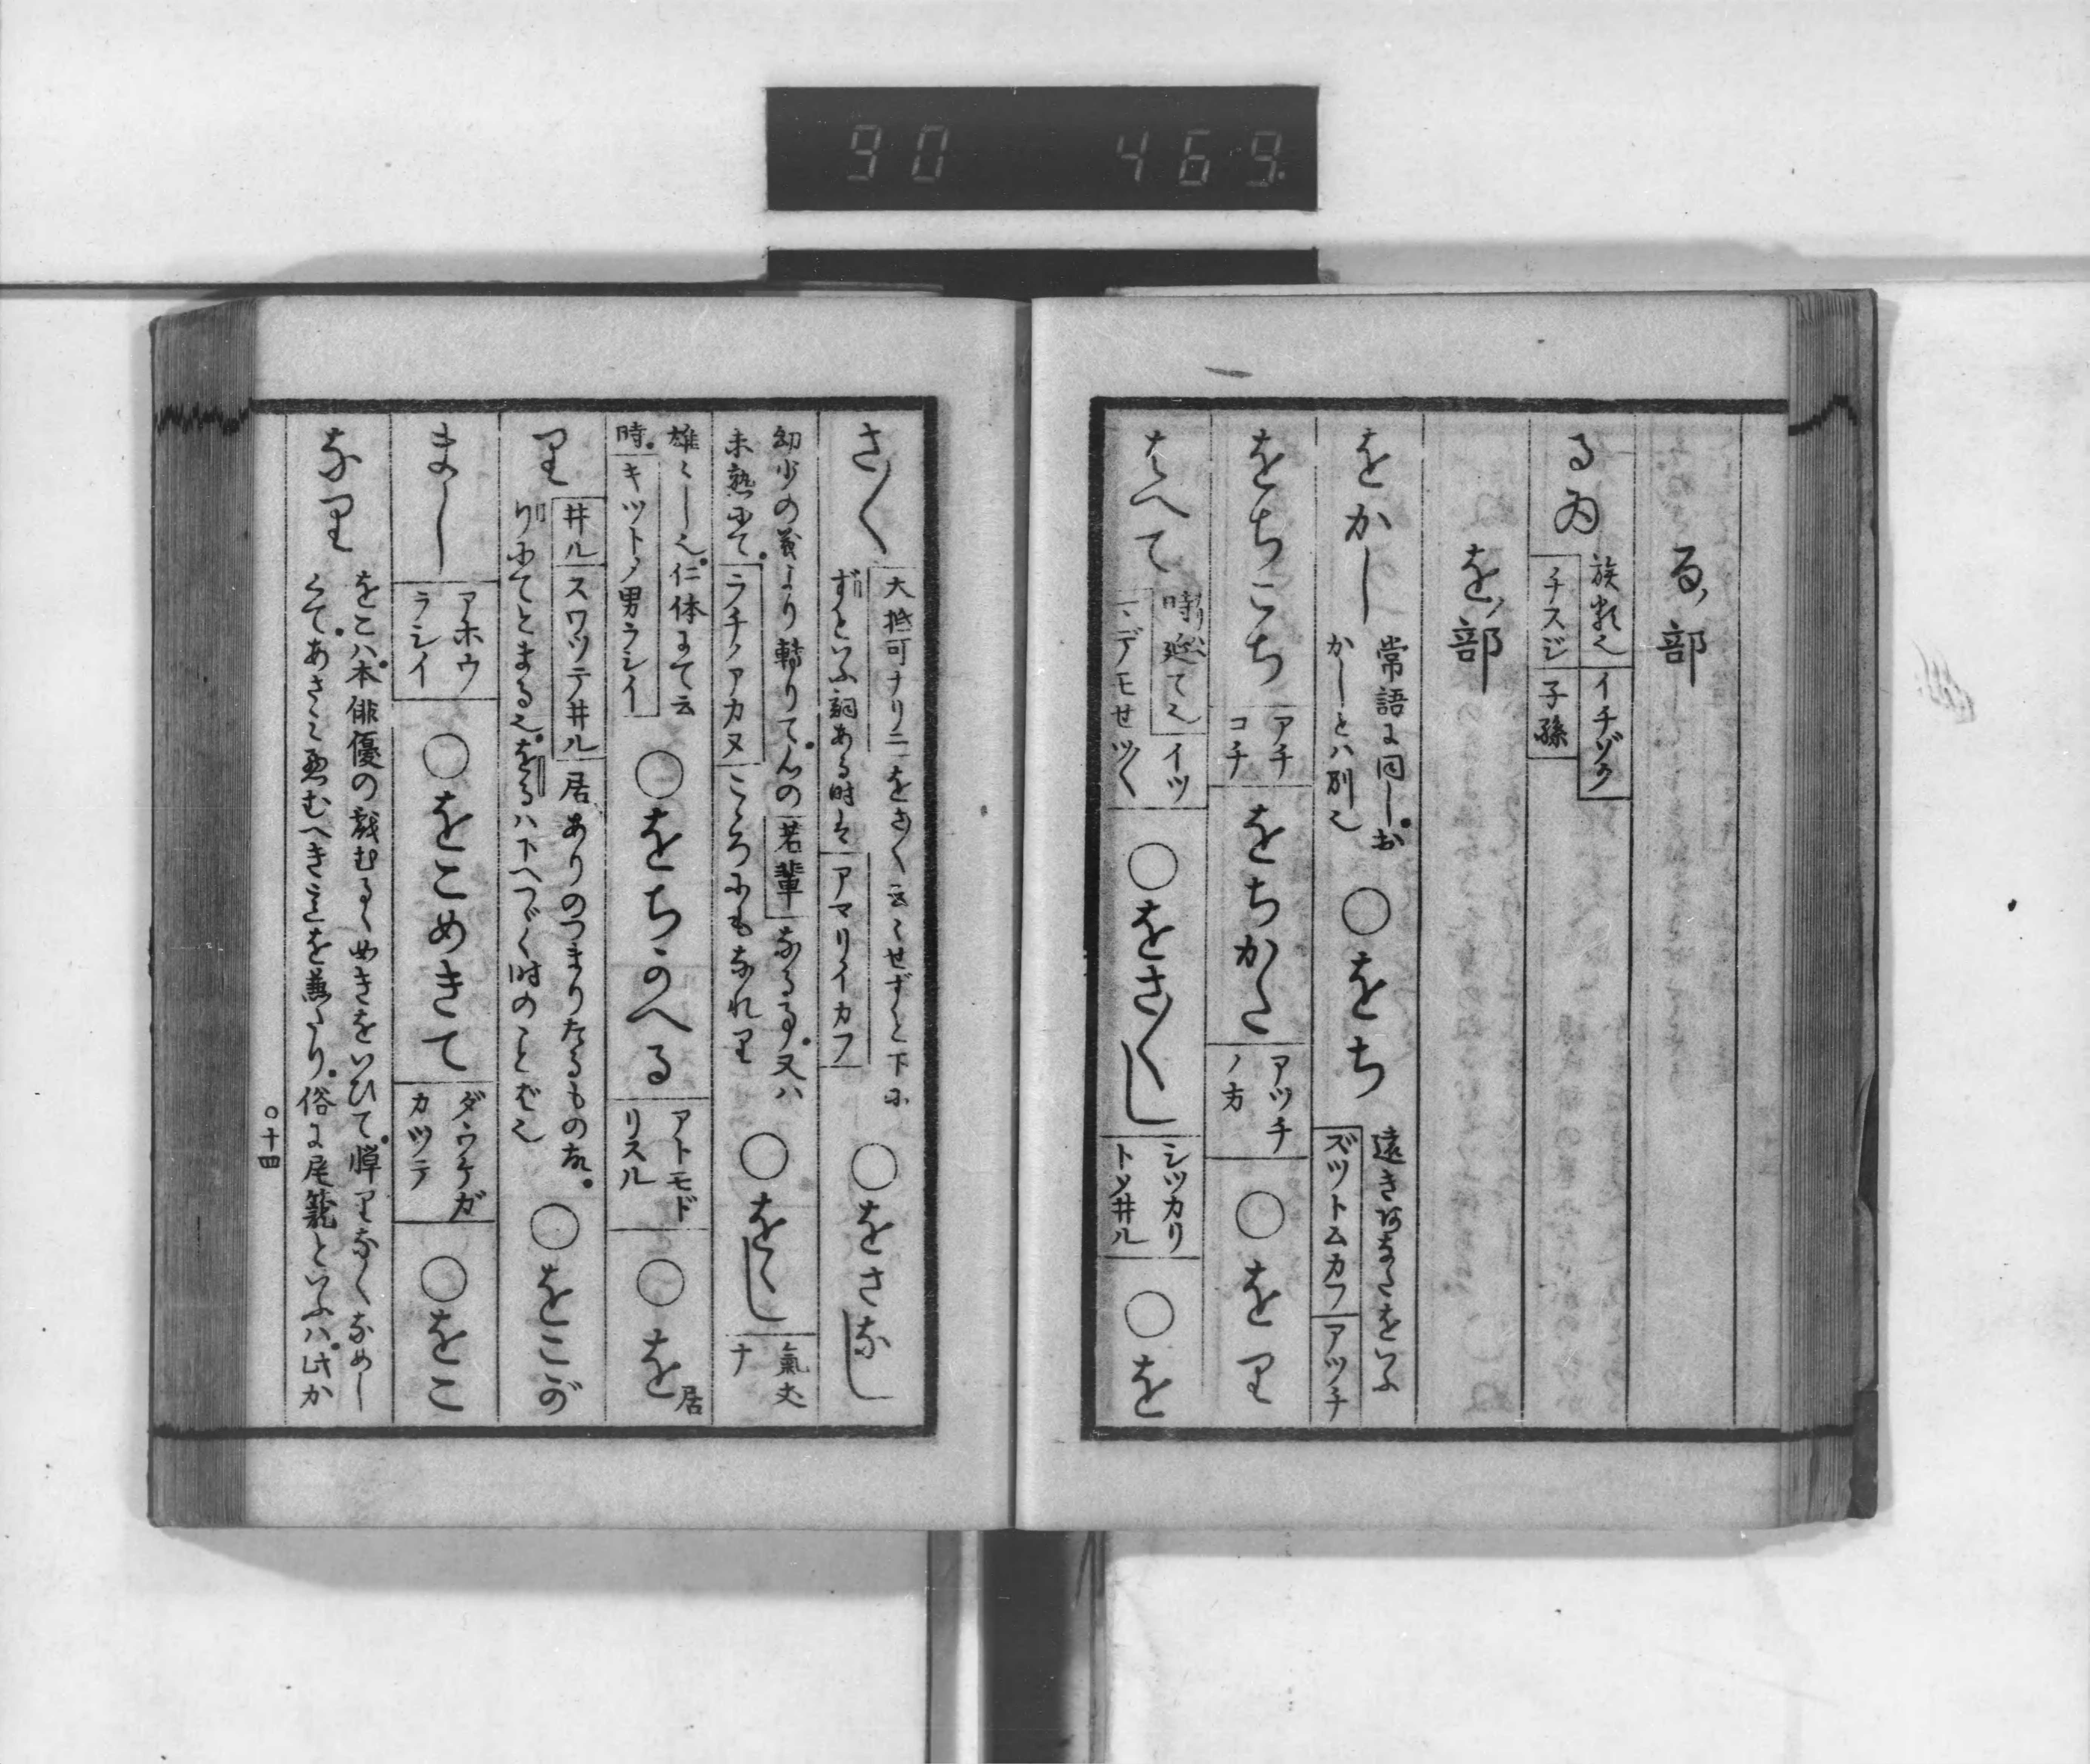 90 469.
る部
るゐ 族類也 イチゾク
ノチスジ 子孫
を部
をかし 常語に同し。お
かしとハ別也 ○をち 遠きかなたをいふ
ズツトムカフ アツチ
をちこち アチ
コチ をちかた アツチ
ノ方 ○をり
はへて 時延て也 イツ
ハデモせツく ○をさ〱し シツカリ
トシ井ル ○を
さ〱 大抵可ナリニ をさ〱云〻せずと下に
ずといふ詞ある時は アマリイカフ ○をさなし
幼少の義より轉りて。心の 若輩 なる事。又ハ
未熟にて。 ラチノアカヌ こゝろにもなれり ○をゝし 氣丈
ナ
雄〻し也。仁体にて云
時。 キツトノ男ラシイ ○をちかへる アトモド
リスル ○を 居
り 井ル スワツテ井ル 居ありのつまりたるもの故。
りにてとまる也。をるハ下へつゞく時のことば也 ○をこが
まし アホウ
ラシイ ○をこめきて ダウケガ
カツテ ○をこ
なり をこハ。本俳優の戯むるゝめきをいひて。憚りなくなめし
くて。あさミ悪むへき意を兼たり。俗に尾籠といふハ。此か
○十四